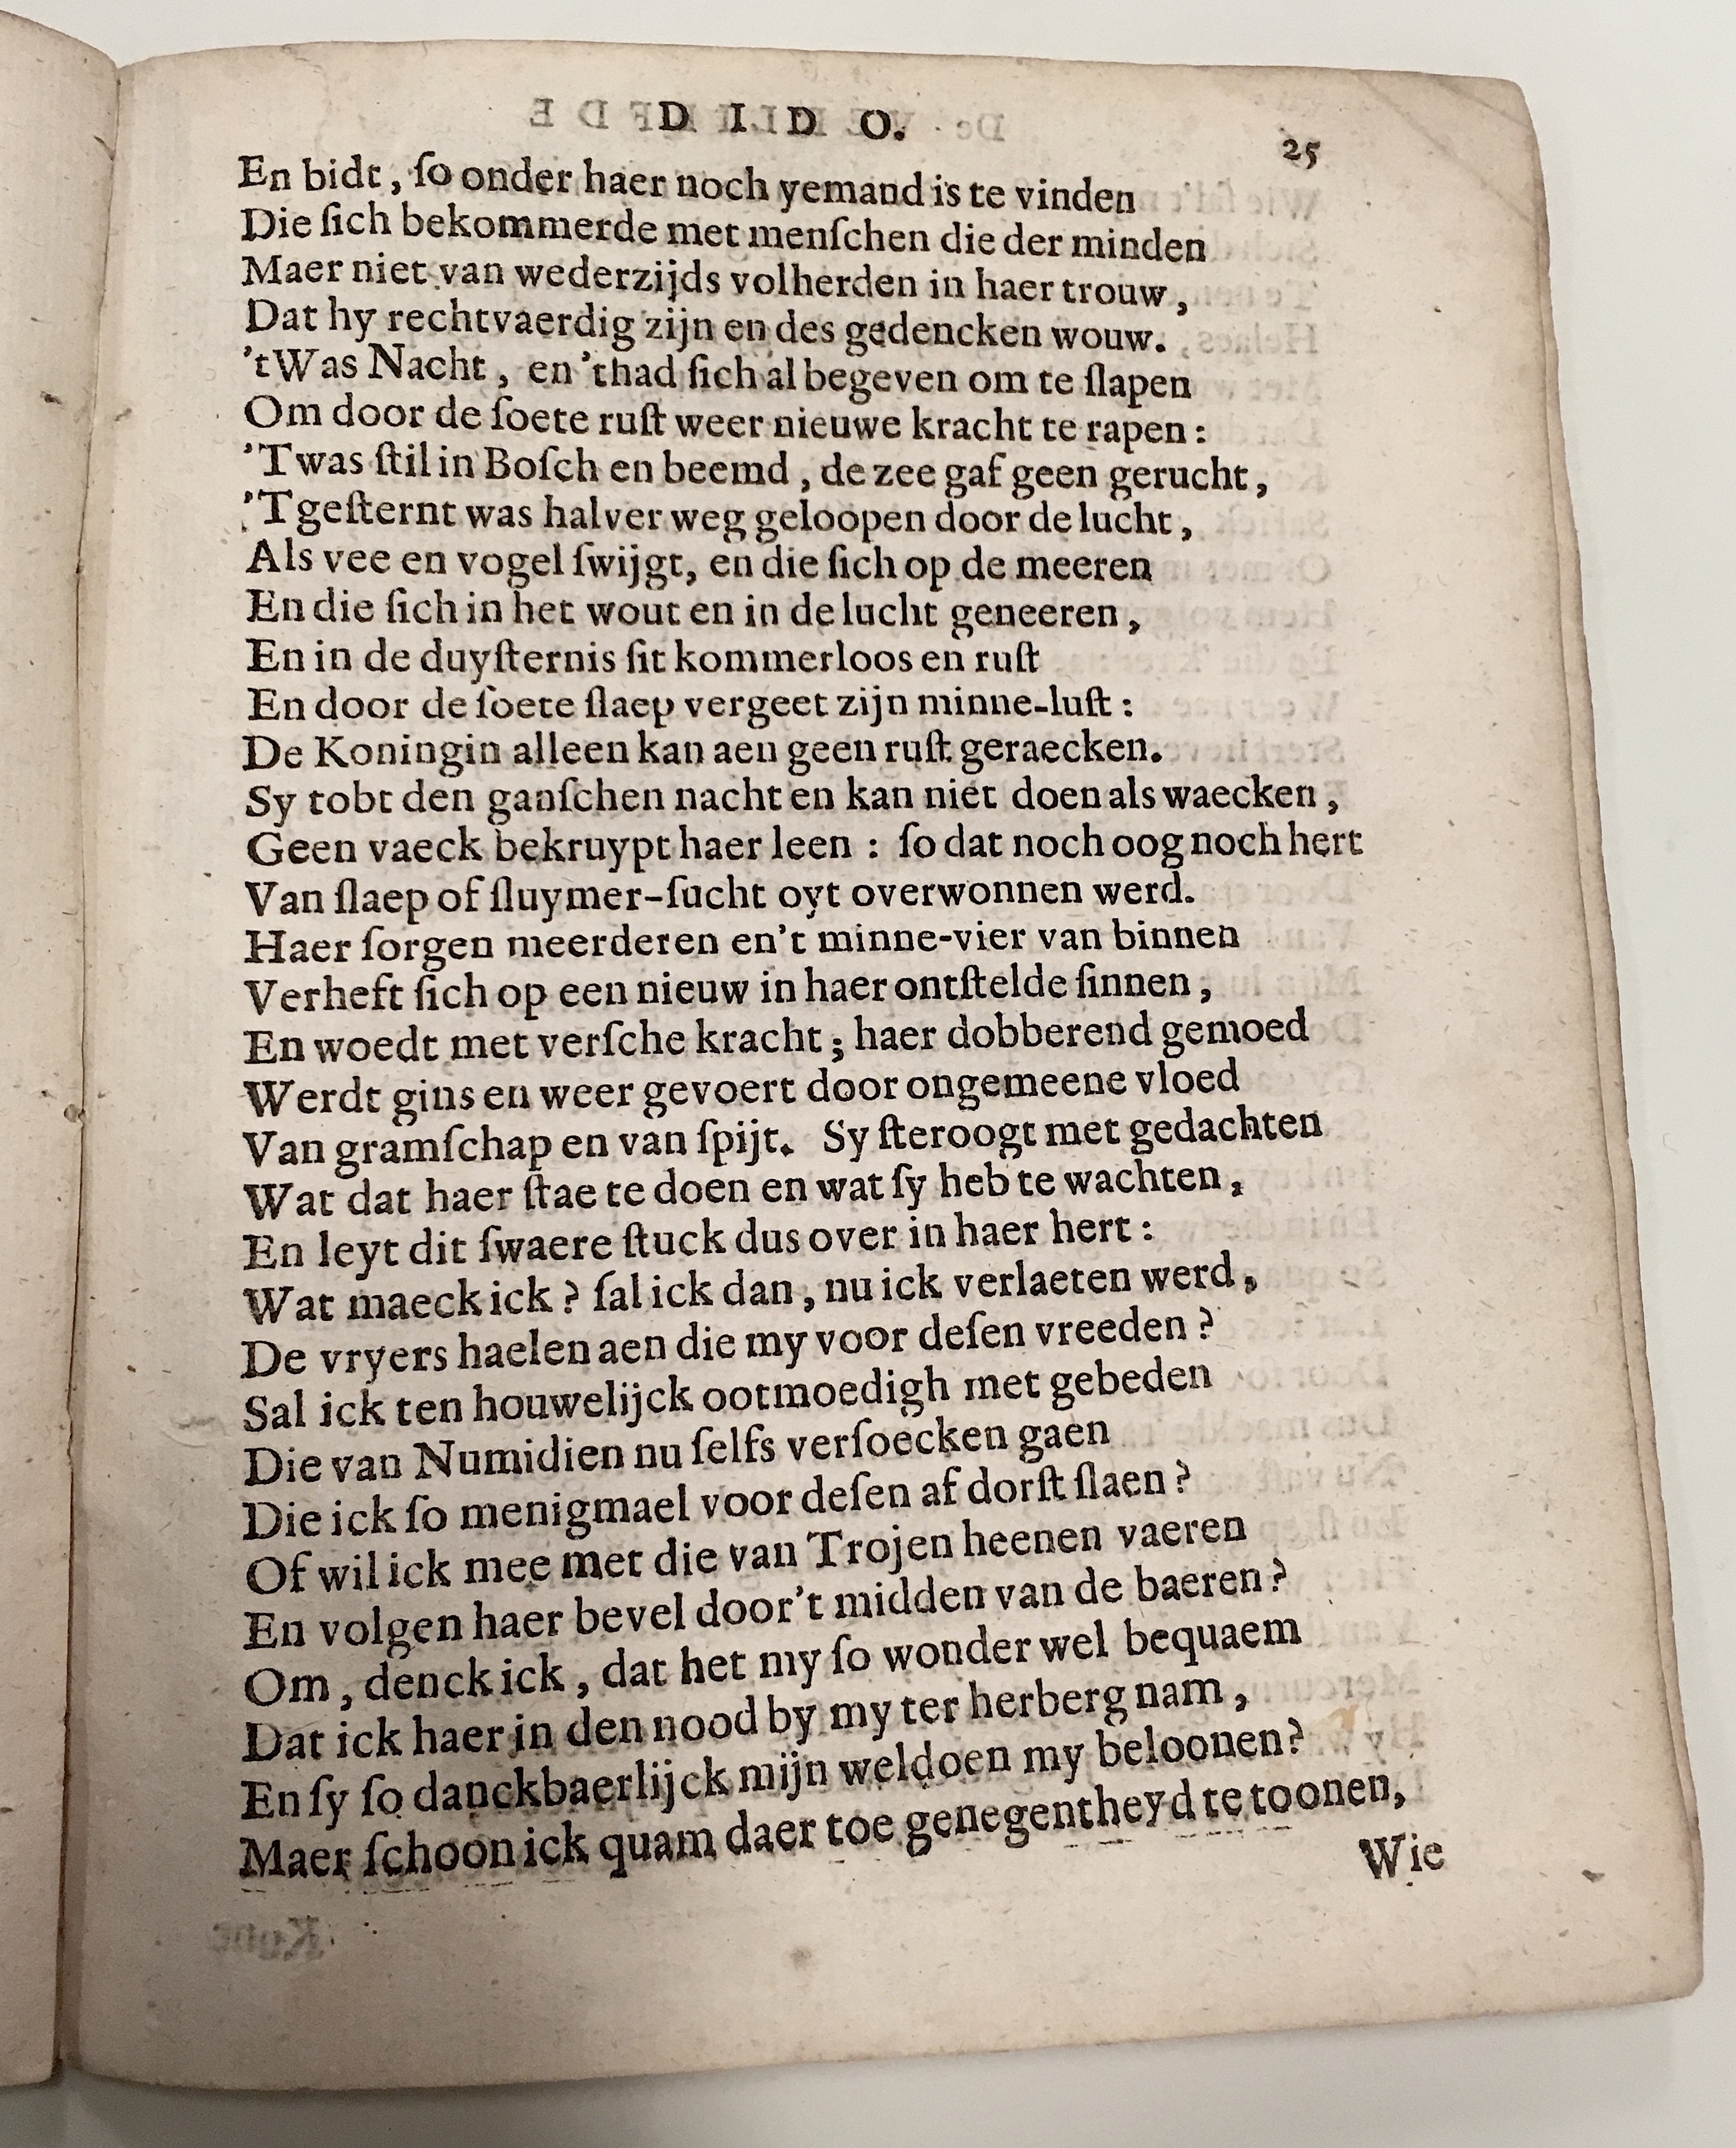 D I D O.
25
En bidt, ſo onder haer noch yemand is te vinden
Die ſich bekommerde met menſchen die der minden
Maer niet van wederzijds volherden in haer trouw,
Dat hy rechtvaerdig zijn en des gedencken wouw.
'tWas Nacht, en 'thad ſich al begeven om te ſlapen
Om door de ſoete ruſt weer nieuwe kracht te rapen:
'Twas ſtil in Boſch en beemd, de zee gaf geen gerucht,
'Tgeſternt was halver weg geloopen door de lucht,
Als vee en vogel ſwijgt, en die ſich op de meeren
En die ſich in het wout en in de lucht geneeren,
En in de duyſternis ſit kommerloos en ruſt
En door de ſoete ſlaep vergeet zijn minne-luſt:
De Koningin alleen kan aen geen ruſt geraecken.
Sy tobt den ganſchen nacht en kan niet doen als waecken,
Geen vaeck bekruypt haer leen: ſo dat noch oog noch hert
Van ſlaep of ſluymer-ſucht oyt overwonnen werd.
Haer ſorgen meerderen en't minne-vier van binnen
Verheft ſich op een nieuw in haer ontſtelde ſinnen,
En woedt met verſche kracht; haer dobberend gemoed
Werdt gins en weer gevoert door ongemeene vloed
Van gramſchap en van ſpijt. Sy ſteroogt met gedachten
Wat dat haer ſtae te doen en wat ſy heb te wachten,
En leyt dit ſwaere ſtuck dus over in haer hert:
Wat maeck ick? ſal ick dan, nu ick verlaeten werd,
De vryers haelen aen die my voor deſen vreeden?
Sal ick ten houwelijck ootmoedigh met gebeden
Die van Numidien nu ſelfs verſoecken gaen
Die ick ſo menigmael voor deſen af dorſt ſlaen?
Of wil ick mee met die van Trojen heenen vaeren
En volgen haer bevel door't midden van de baeren?
Om, denck ick, dat het my ſo wonder wel bequaem
Dat ick haer in den nood by my ter herberg nam,
En ſy ſo danckbaerlijck mijn weldoen my beloonen?
Maer ſchoon ick quam daer toe genegentheyd te toonen,
Wie